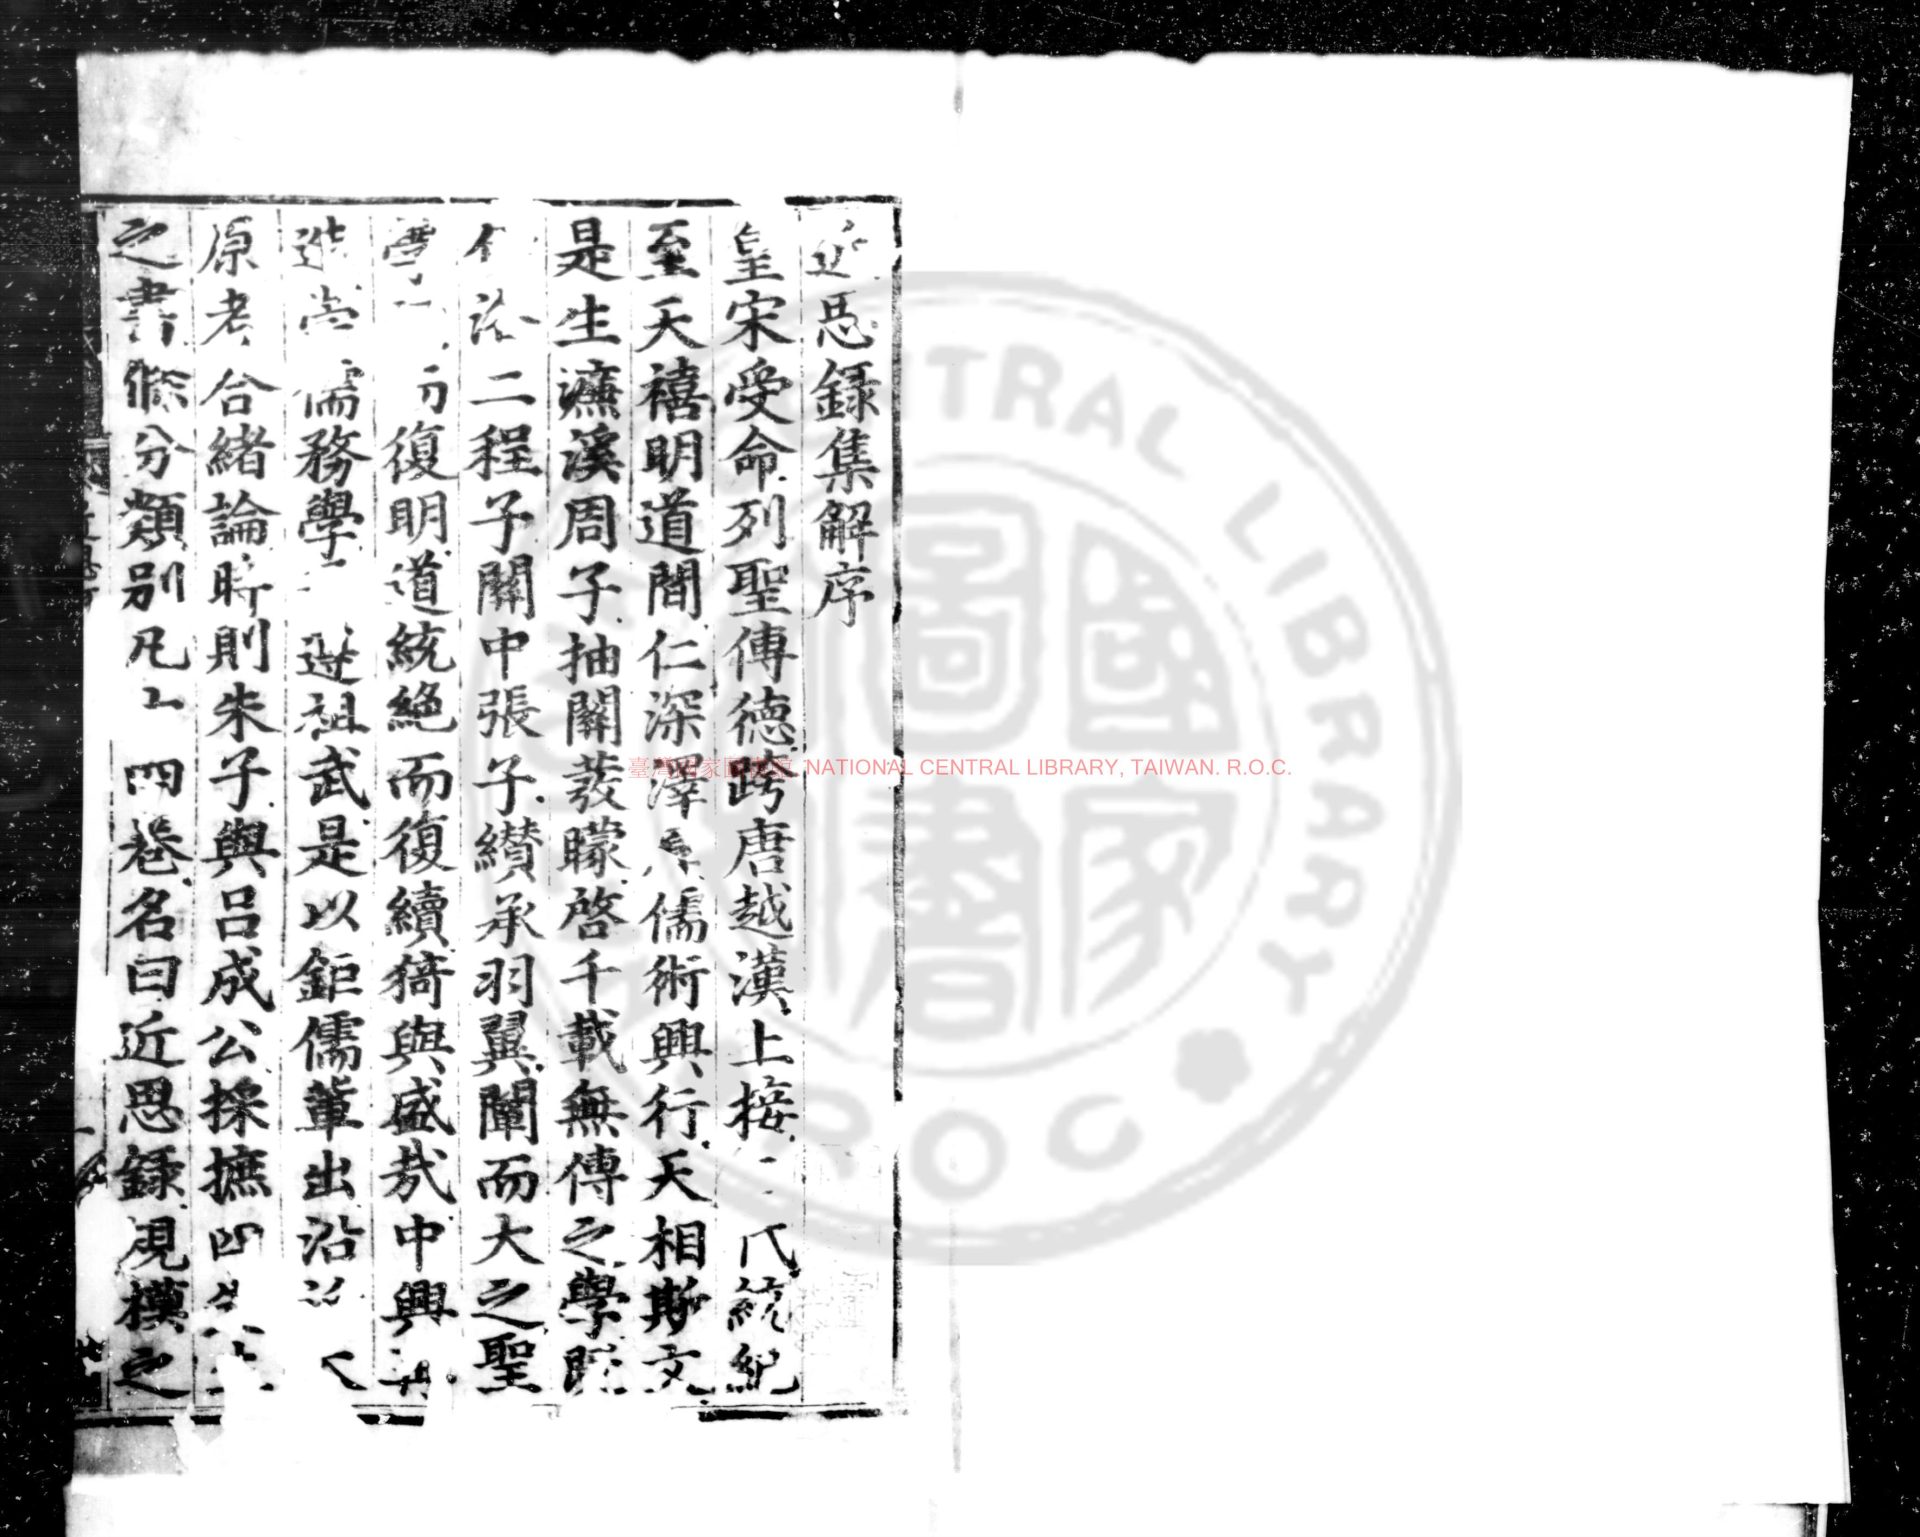 近思錄集解序
皇宋受命列聖傳德跨唐越漢上接 代統紀
至天禧明道間仁深澤厚儒術興行天相斯文
是生濂溪周子抽關發矇啓千載無傳之學既
洛二程子關中張子纘承羽翼闡而大之聖
學 復明道統絕而復續猗與盛哉中興
造 儒務學 遵祖武是以鉅儒輩出沿
原考合緒論時則朱子與呂成公採摭四先生
之書條分類別凡十四巻名曰近思錄規模之
臺灣國家圖書館 NATIONAL CENTRAL LIBRARY, TAIWAN. R.O.C.
CENTRAL LIBRARY
R O C
國家圖書